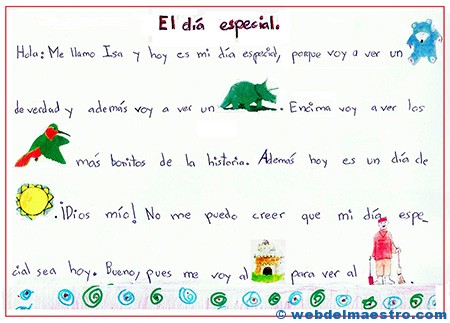 El día especial.
Hola: Me llamo Isa y hoy es mi día especial, porque voy a ver un
de verdad y además voy a ver un . Encima voy a ver los
más bonitos de la historia. Además hoy es un día de
. ¡Dios mío! No me puedo creer que mi día espe-
cial sea hoy. Bueno, pues me voy al para ver al .
© webdelmaestro.com